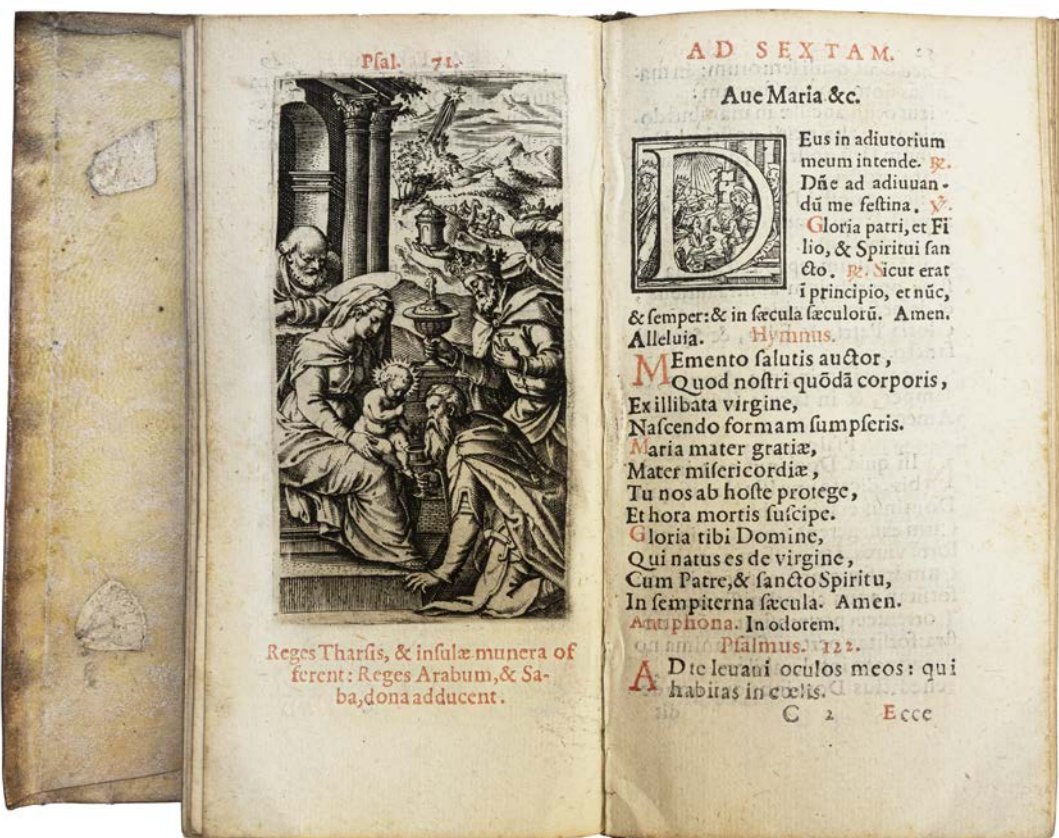 Pſal. 71.
Reges Tharſis, & inſulæ munera of
ferent: Reges Arabum, & Sa-
ba, dona adducent.
AD SEXTAM.
Aue Maria &c.
DEus in adiutorium
meum intende. ℞.
Dñe ad adiuuan-
dũ me feſtina. ℣.
Gloria patri, et Fi
lio, & Spiritui ſan
cto. ℞. Sicut erat
ĩ principio, et nũc,
& ſemper: & in ſæcula ſæculorũ. Amen.
Alleluia. Hymnus.
MEmento ſalutis auctor,
Quod noſtri quõdã corporis,
Ex illibata virgine,
Naſcendo formam ſumpſeris.
Maria mater gratiæ,
Mater miſericordiæ,
Tu nos ab hoſte protege,
Et hora mortis ſuſcipe.
Gloria tibi Domine,
Qui natus es de virgine,
Cum Patre, & ſancto Spiritu,
In ſempiterna ſæcula. Amen.
Antiphona. In odorem.
Pſalmus. 122.
AD te leuani oculos meos: qui
habitas in cœlis.
C 2 Ecce